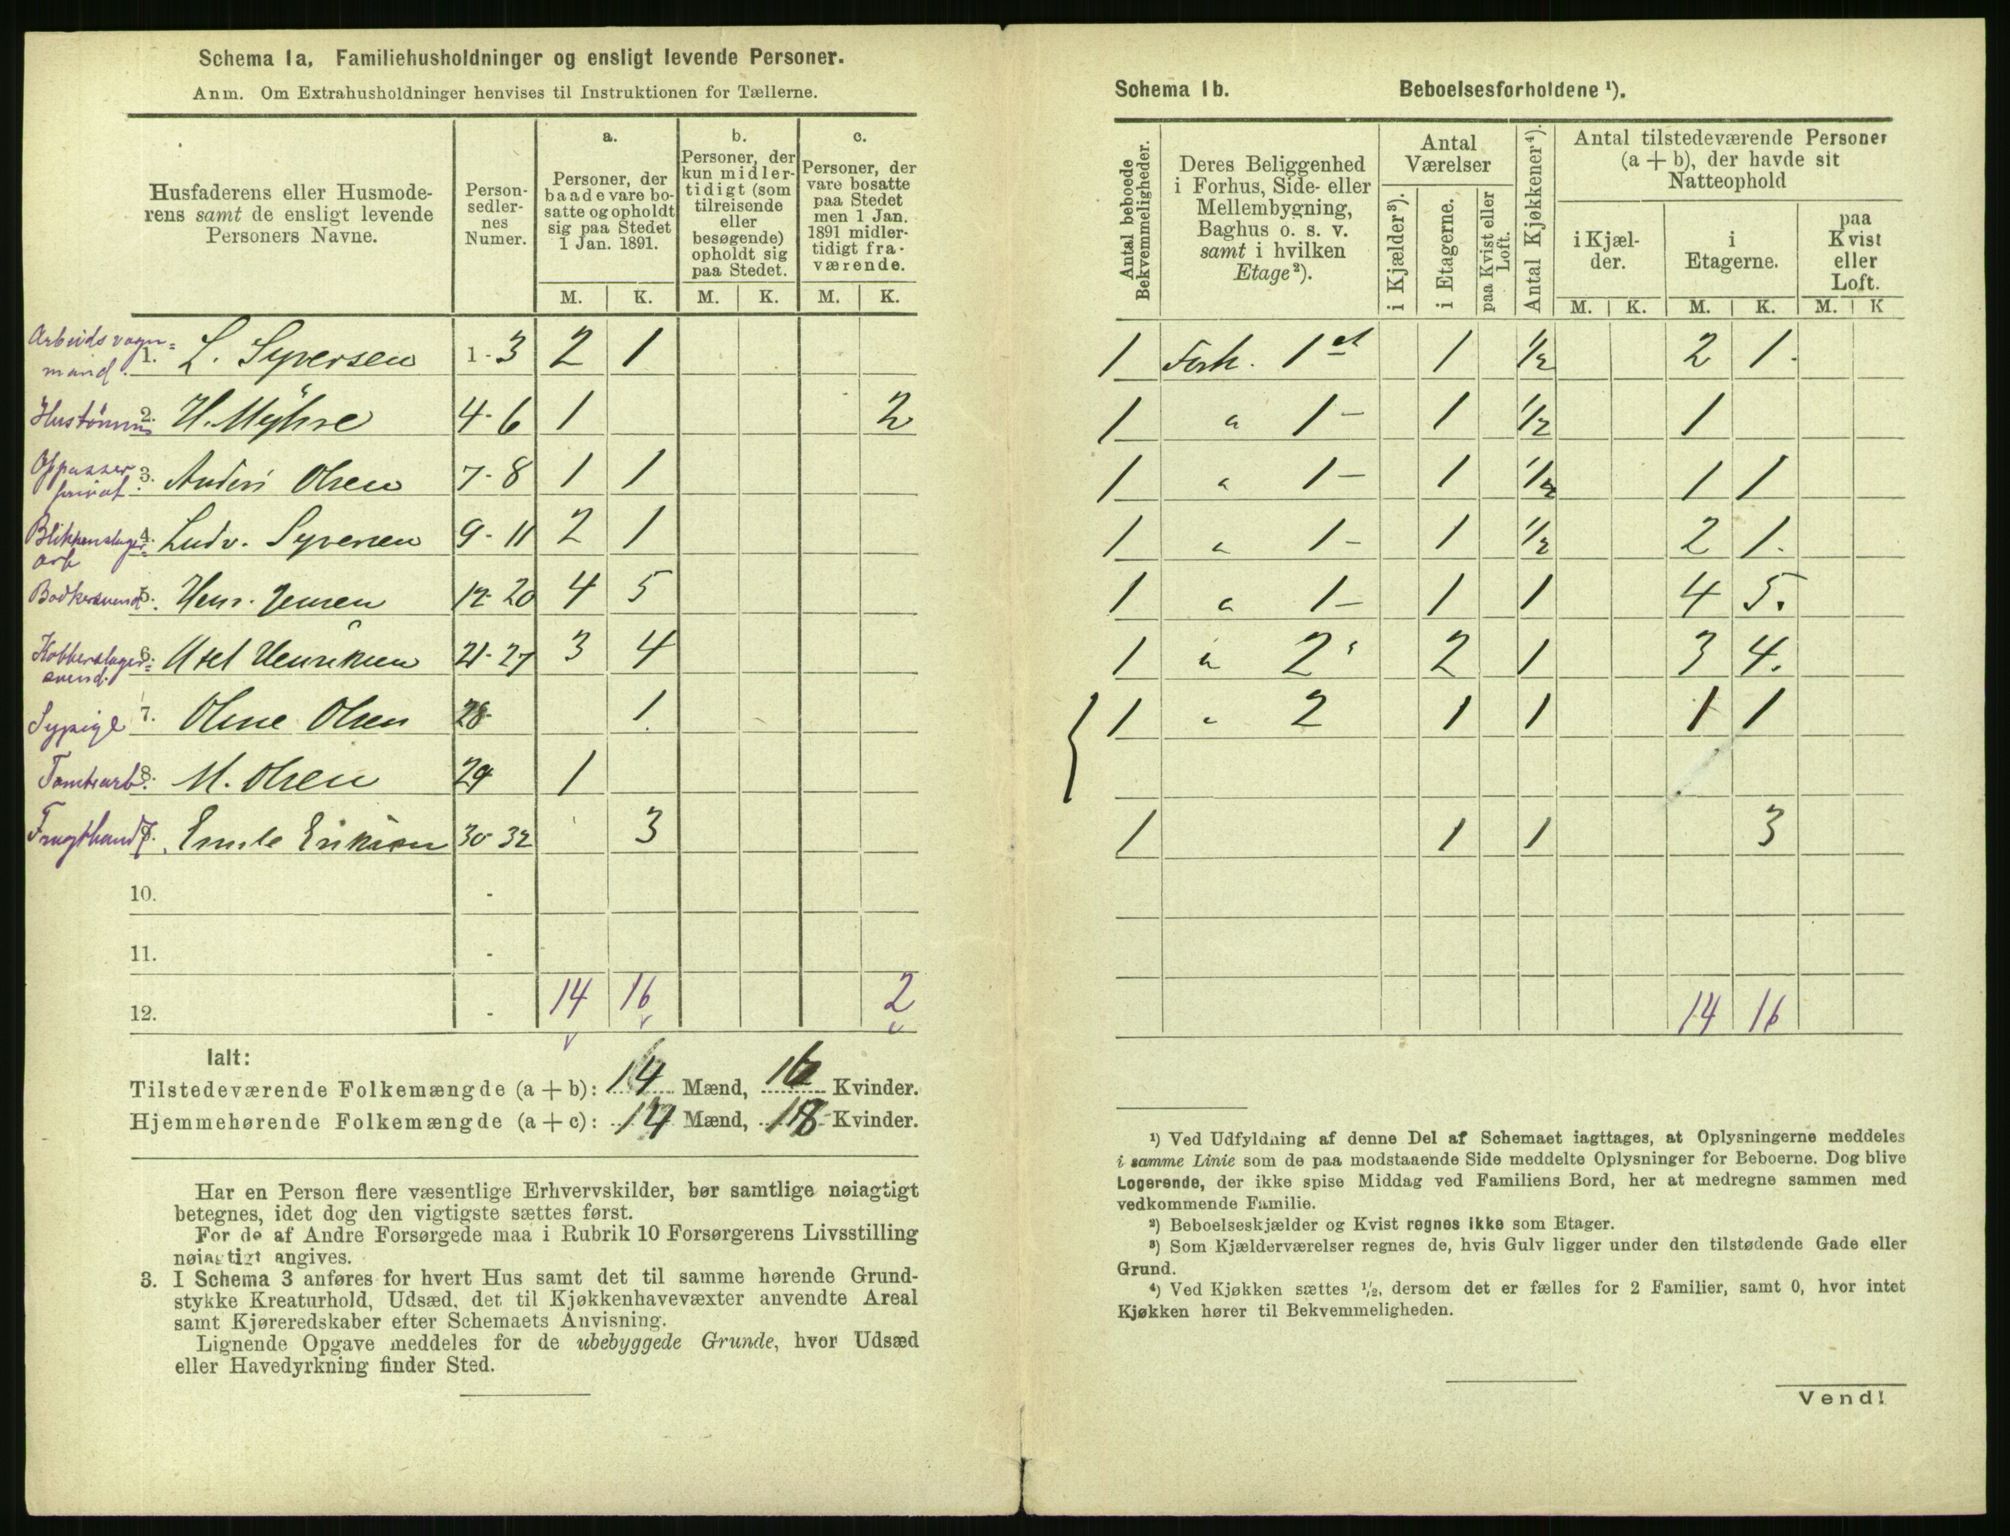 Schema 1a, Familiehusholdninger og ensligt levende Personer.
Anm. Om Extrahusholdninger henvises til Instruktionen for Tællerne.
Husfaderens eller Husmoderens samt de ensligt levende Personers Navne.
Personsedlernes Numer.
a.
Personer, der baade vare bosatte og opholdt sig paa Stedet 1 Jan. 1891.
b.
Personer, der kun midlertidigt (som tilreisende eller besøgende) opholdt sig paa Stedet.
c.
Personer, der vare bosatte paa Stedet men 1 Jan. 1891 midlertidigt fraværende.
M. K. M. K. M. K.
Arbeidsvognmand. 1. L. Syversen 1-3 2 1
2. H. Myhre 4-6 1 2
Oppasser privat 3. Anders Olsen 7-8 1 1
Blikkenslagerarb 4. Ludv. Syversen 9-11 2 1
Bødkersvend 5. Henr. Jensen 12-20 4 5
Kobberslagersvend. 6. Axel Henriksen 21-27 3 4
Sypige 7. Oline Olsen 28- 1.
Tomtearb. 8. M. Olsen 29 1
Frugthand 9. Emile Eriksen 30-32 3
10. -
11. -
12. - 14 16 2
Ialt:
Tilstedeværende Folkemængde (a + b): 14 Mænd, 16 Kvinder.
Hjemmehørende Folkemængde (a + c): 14 Mænd, 18 Kvinder.
Har en Person flere væsentlige Erhvervskilder, bør samtlige nøiagtigt
betegnes, idet dog den vigtigste sættes først.
For de af Andre Forsørgede maa i Rubrik 10 Forsørgerens Livsstilling
nøiagtigt angives.
3. I Schema 3 anføres for hvert Hus samt det til samme hørende Grund-
stykke Kreaturhold, Udsæd, det til Kjøkkenhavevæxter anvendte Areal
samt Kjøreredskaber efter Schemaets Anvisning.
Lignende Opgave meddeles for de ubebyggede Grunde, hvor Udsæd
eller Havedyrkning finder Sted.
Schema 1b. Beboelsesforholdene ¹).
Antal beboede Bekvemmeligheder.
Deres Beliggenhed i Forhus, Side- eller Mellembygning, Baghus o. s. v. samt i hvilken Etage ²).
Antal Værelser
i Kjælder ³).
i Etagerne.
paa Kvist eller Loft.
Antal Kjøkkener ⁴).
Antal tilstedeværende Personer (a + b), der havde sit Natteophold
i Kjælder.
i Etagerne.
paa Kvist eller Loft.
M. K. M. K. M. K
1 Forh. 1 et 1 ½ 2 1.
1 " 1 - 1 ½ 1
1 " 1 - 1 ½ 1 1
1 " 1 - 1 ½ 2 1.
1 " 1 - 1 1 4 5.
1 " 2 " 2 1 3 4.
1 " 2 1 1 1 1
1 1 1 3
14 16
¹) Ved Udfyldning af denne Del af Schemaet iagttages, at Oplysningerne meddeles
i samme Linie som de paa modstaaende Side meddelte Oplysninger for Beboerne. Dog blive
Logerende, der ikke spise Middag ved Familiens Bord, her at medregne sammen med
vedkommende Familie.
²) Beboelseskjælder og Kvist regnes ikke som Etager.
³) Som Kjælderværelser regnes de, hvis Gulv ligger under den tilstødende Gade eller
Grund.
⁴) Ved Kjøkken sættes ½, dersom det er fælles for 2 Familier, samt 0, hvor intet
Kjøkken hører til Bekvemmeligheden.
Vend!